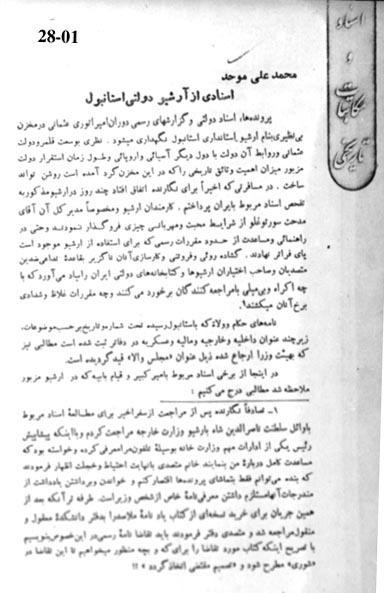 28-01
اسناد
و
مکاتبات
تاریخی
محمد علی موحد
اسنادی از آرشیو دولتی استانبول
پرونده‌ها، اسناد دولتی و گزارشهای رسمی دوران امپراتوری عثمانی درمخزن
بی‌نظیری بنام آرشیو استانداری استانبول نگهداری میشود. نظری بوسعت قلمرودولت
عثمانی وروابط آن دولت با دول دیگر آسیائی واروپائی وطول زمان استقرار دولت
مزبور میزان اهمیت وثائق تاریخی را که در این مخزن گرد آمده است روشن تواند
ساخت. در مسافرتی که اخیراً برای نگارنده اتفاق افتاد چند روز درآرشیومذکور به
تفحص اسناد مربوط بایران پرداختم. کارمندان آرشیو ومخصوصاً مدیر کل آن آقای
مدحت سورتوغلو از شرایط محبت ومهربانی چیزی فروگذار ننمودند وحتی در
راهنمائی ومساعدت از حدود مقررات رسمی که برای استفاده از آرشیو موجود است
پای فراتر نهادند. گشاده روئی وفروتنی وکارسازی آنان ناگزیر بقاعدهٔ تداعی ضدین
متصدیان وصاحب اختیاران آرشیوها وکتابخانه‌های دولتی ایران رابیاد می‌آورد که با
چه اکراه وبی‌میلی بامراجعه کنندگان برخورد می‌کنند وچه مقررات غلاظ وشدادی
برخ آنان میکشند!.
نامه‌های حکام وولاة که باستانبول رسیده تحت شماره وتاریخ برحسب موضوعات،
زیرچند عنوان داخلیه وخارجیه ومالیه وعسکریه در دفاتر ثبت شده است مطالبی نیز
که بهیئت وزرا ارجاع شده ذیل عنوان «مجلس والا» قید گردیده است.
در اینجا از برخی اسناد مربوط بامیر کبیر و قیام بابیه که در آرشیو مزبور
ملاحظه شد مطالبی درج می‌کنیم :
۱- تصادفاً نگارنده پس از مراجعت از سفر اخیر برای مطالعهٔ اسناد مربوط
باوائل سلطنت ناصرالدین شاه بآرشیو وزارت خارجه مراجعت کردم وبااینکه پیشاپیش
رئیس یکی از ادارات مهم وزارت خانه بوسیلهٔ تلفون مرا معرفی کرده وخواسته بود که
مساعدت کامل دربارهٔ من بنمایند خانم متصدی بانهایت احتیاط وخجلت اظهار فرمودند
که بنده می‌توانم فقط بتماشای پرونده‌ها اقتصار کنم و خواندن وبرداشتن یادداشت از
مندرجات آنها مستلزم داشتن معرفی نامهٔ خاص از شخص وزیر است. طرفه تر آنکه بعد از
همین جریان برای خرید نسخه‌ای از کتاب یاد نامهٔ ملاصدرا بدفتر دانشکدهٔ معقول و
منقول مراجعه شد و متصدی دفتر فرمودند باید تقاضا نامهٔ رسمی در این خصوص بنویسیم
با تصریح اینکه کتاب مورد تقاضا را برای که و بچه منظور میخواهیم تا این تقاضا در
«شوری» مطرح شود و «تصمیم مقتضی اتخاذ گردد» !!